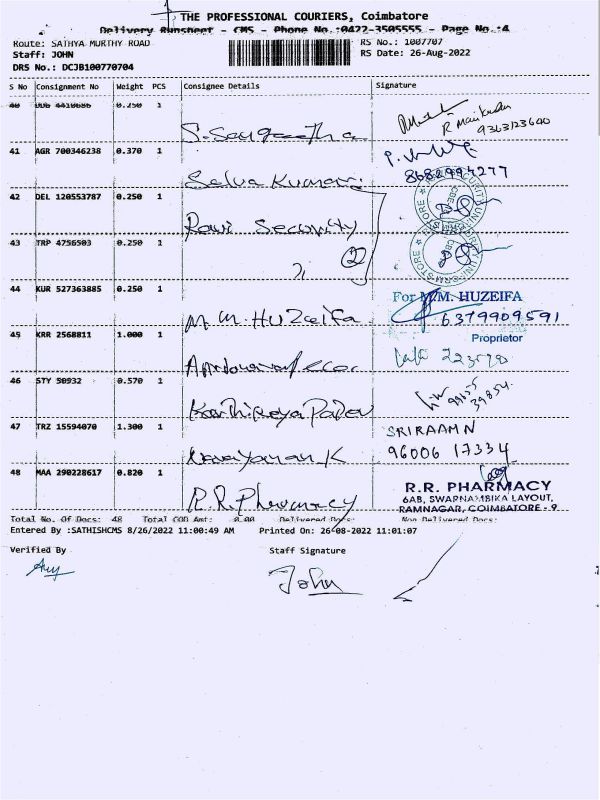 THE PROFESSIONAL COURIERS, Coimbatore
Delivery Runsheet - CMS - Phone No.:0422-3505555 - Page No.:4
Route: SATHYA MURTHY ROAD RS No.: 1007707
Staff: JOHN RS Date: 26-Aug-2022
DRS No.: DCJB100770704
S No Consignment No Weight PCS Consignee Details Signature
40 4410686 0.250 1
S. Sangeetha R Manikandan
9363123600
41 AGR 700346238 0.370 1
Selva Kumari 8682997277
42 DEL 120553787 0.250 1
Ravi Security
43 TRP 4756503 0.250 1
2
44 KUR 527363885 0.250 1 For M.M. HUZEIFA
M. M. HUZeifa 6379909591
45 KRR 2568811 1.000 1 Proprietor
46 STY 50932 0.570 1
Karthikeya
47 TRZ 15594070 1.300 1 SRIRAAM N
Narayanan K 96006 17334
48 MAA 290228617 0.820 1
R.R. Pharmacy R.R. PHARMACY
6AB, SWARNAMBIKA LAYOUT,
RAMNAGAR, COIMBATORE - 9
Total No. Of Docs: 48 Total COD Amt: 0.00 Delivered Docs: Non Delivered Docs:
Entered By :SATHISHCMS 8/26/2022 11:00:49 AM Printed On: 26-08-2022 11:01:07
Verified By Staff Signature
John